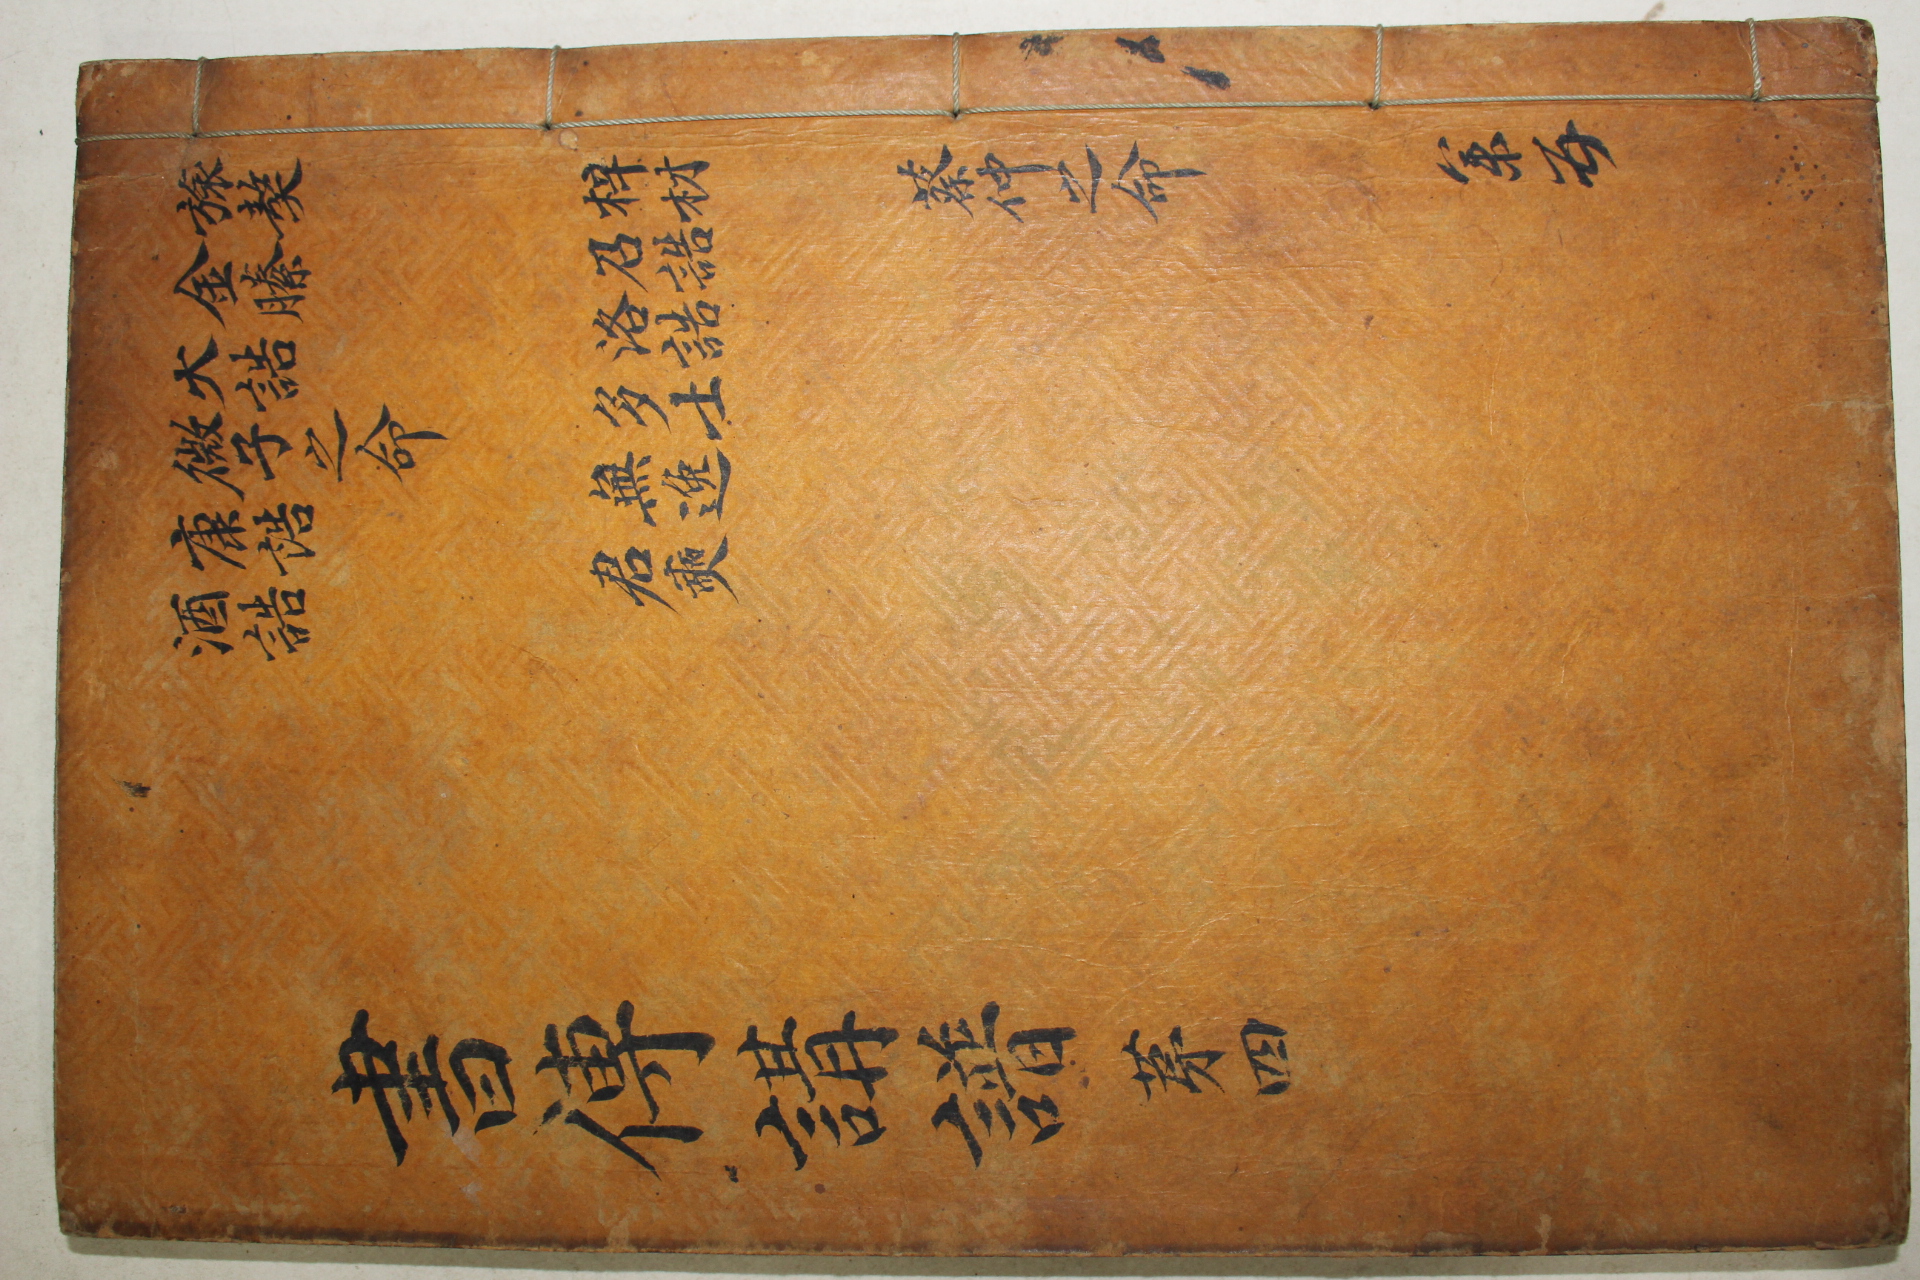 書傳講譜 苐四
旅獒
金縢
大誥
微子之命
康誥
酒誥
梓材
召誥
洛誥
多士
無逸
君奭
蔡仲之命